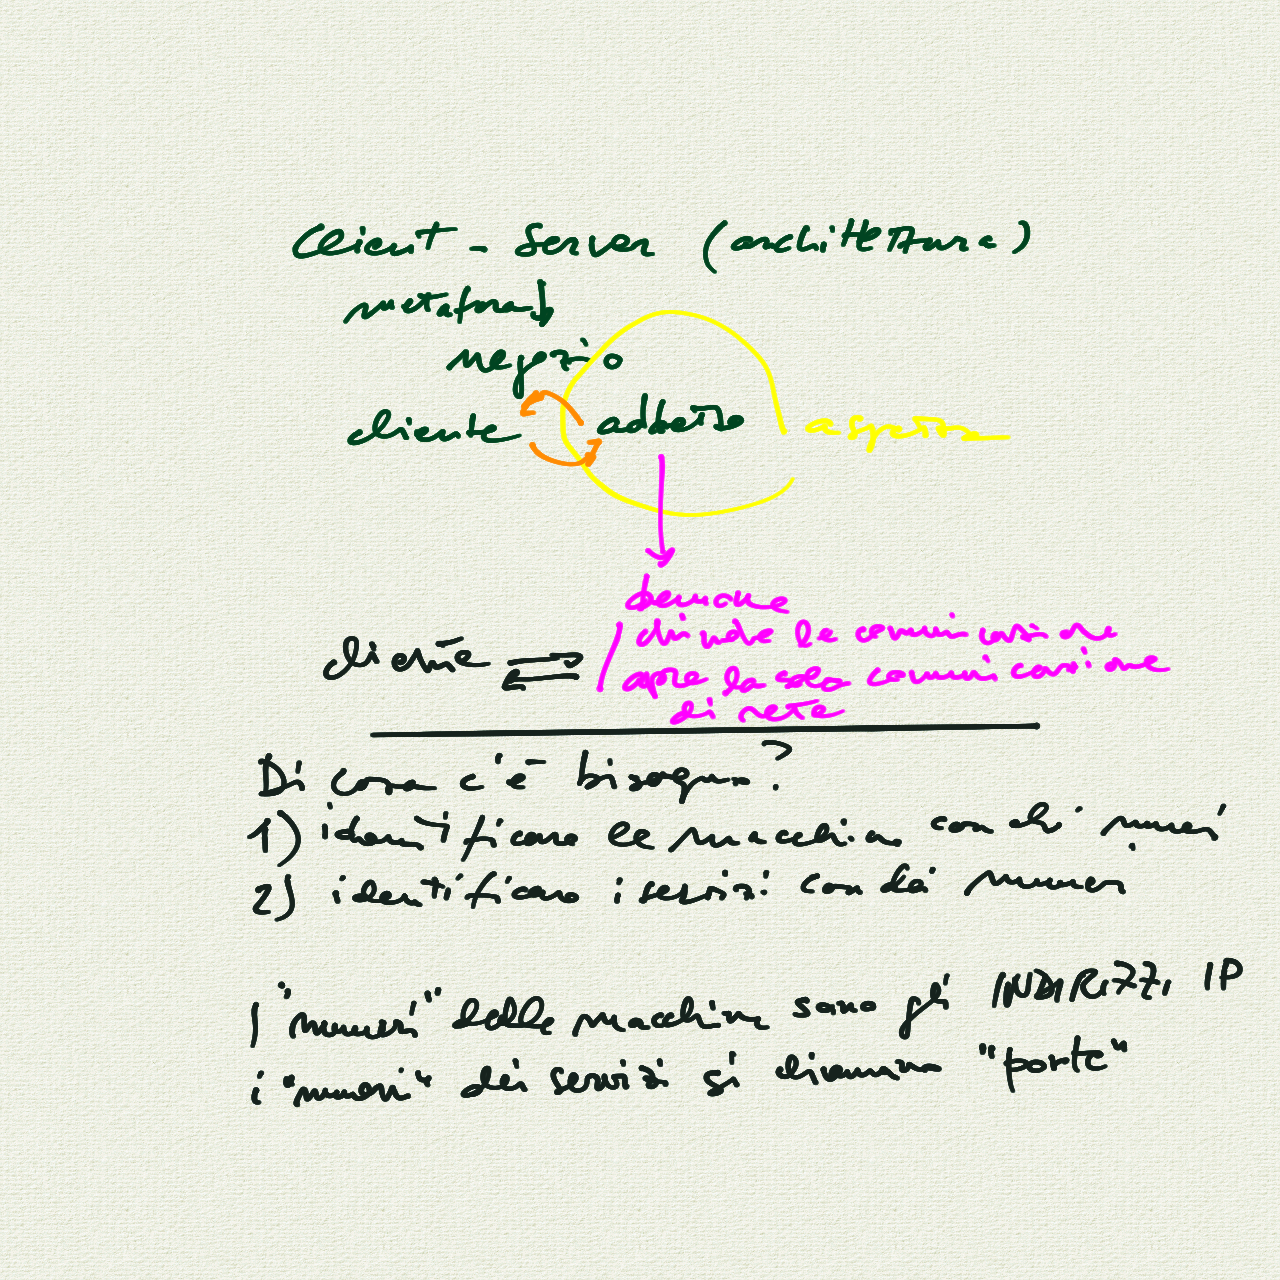 Client - Server (architettura)
metafora
negozio
cliente addetto aspetta
demone
divide la comunicazione
cliente apre la sola comunicazione
di rete
Di cosa c'è bisogno?
1) identificano le macchine con dei numeri
2) identificano i servizi con dei numeri
I "numeri" delle macchine sono gli INDIRIZZI IP
i "numeri" dei servizi si chiamano "porte"